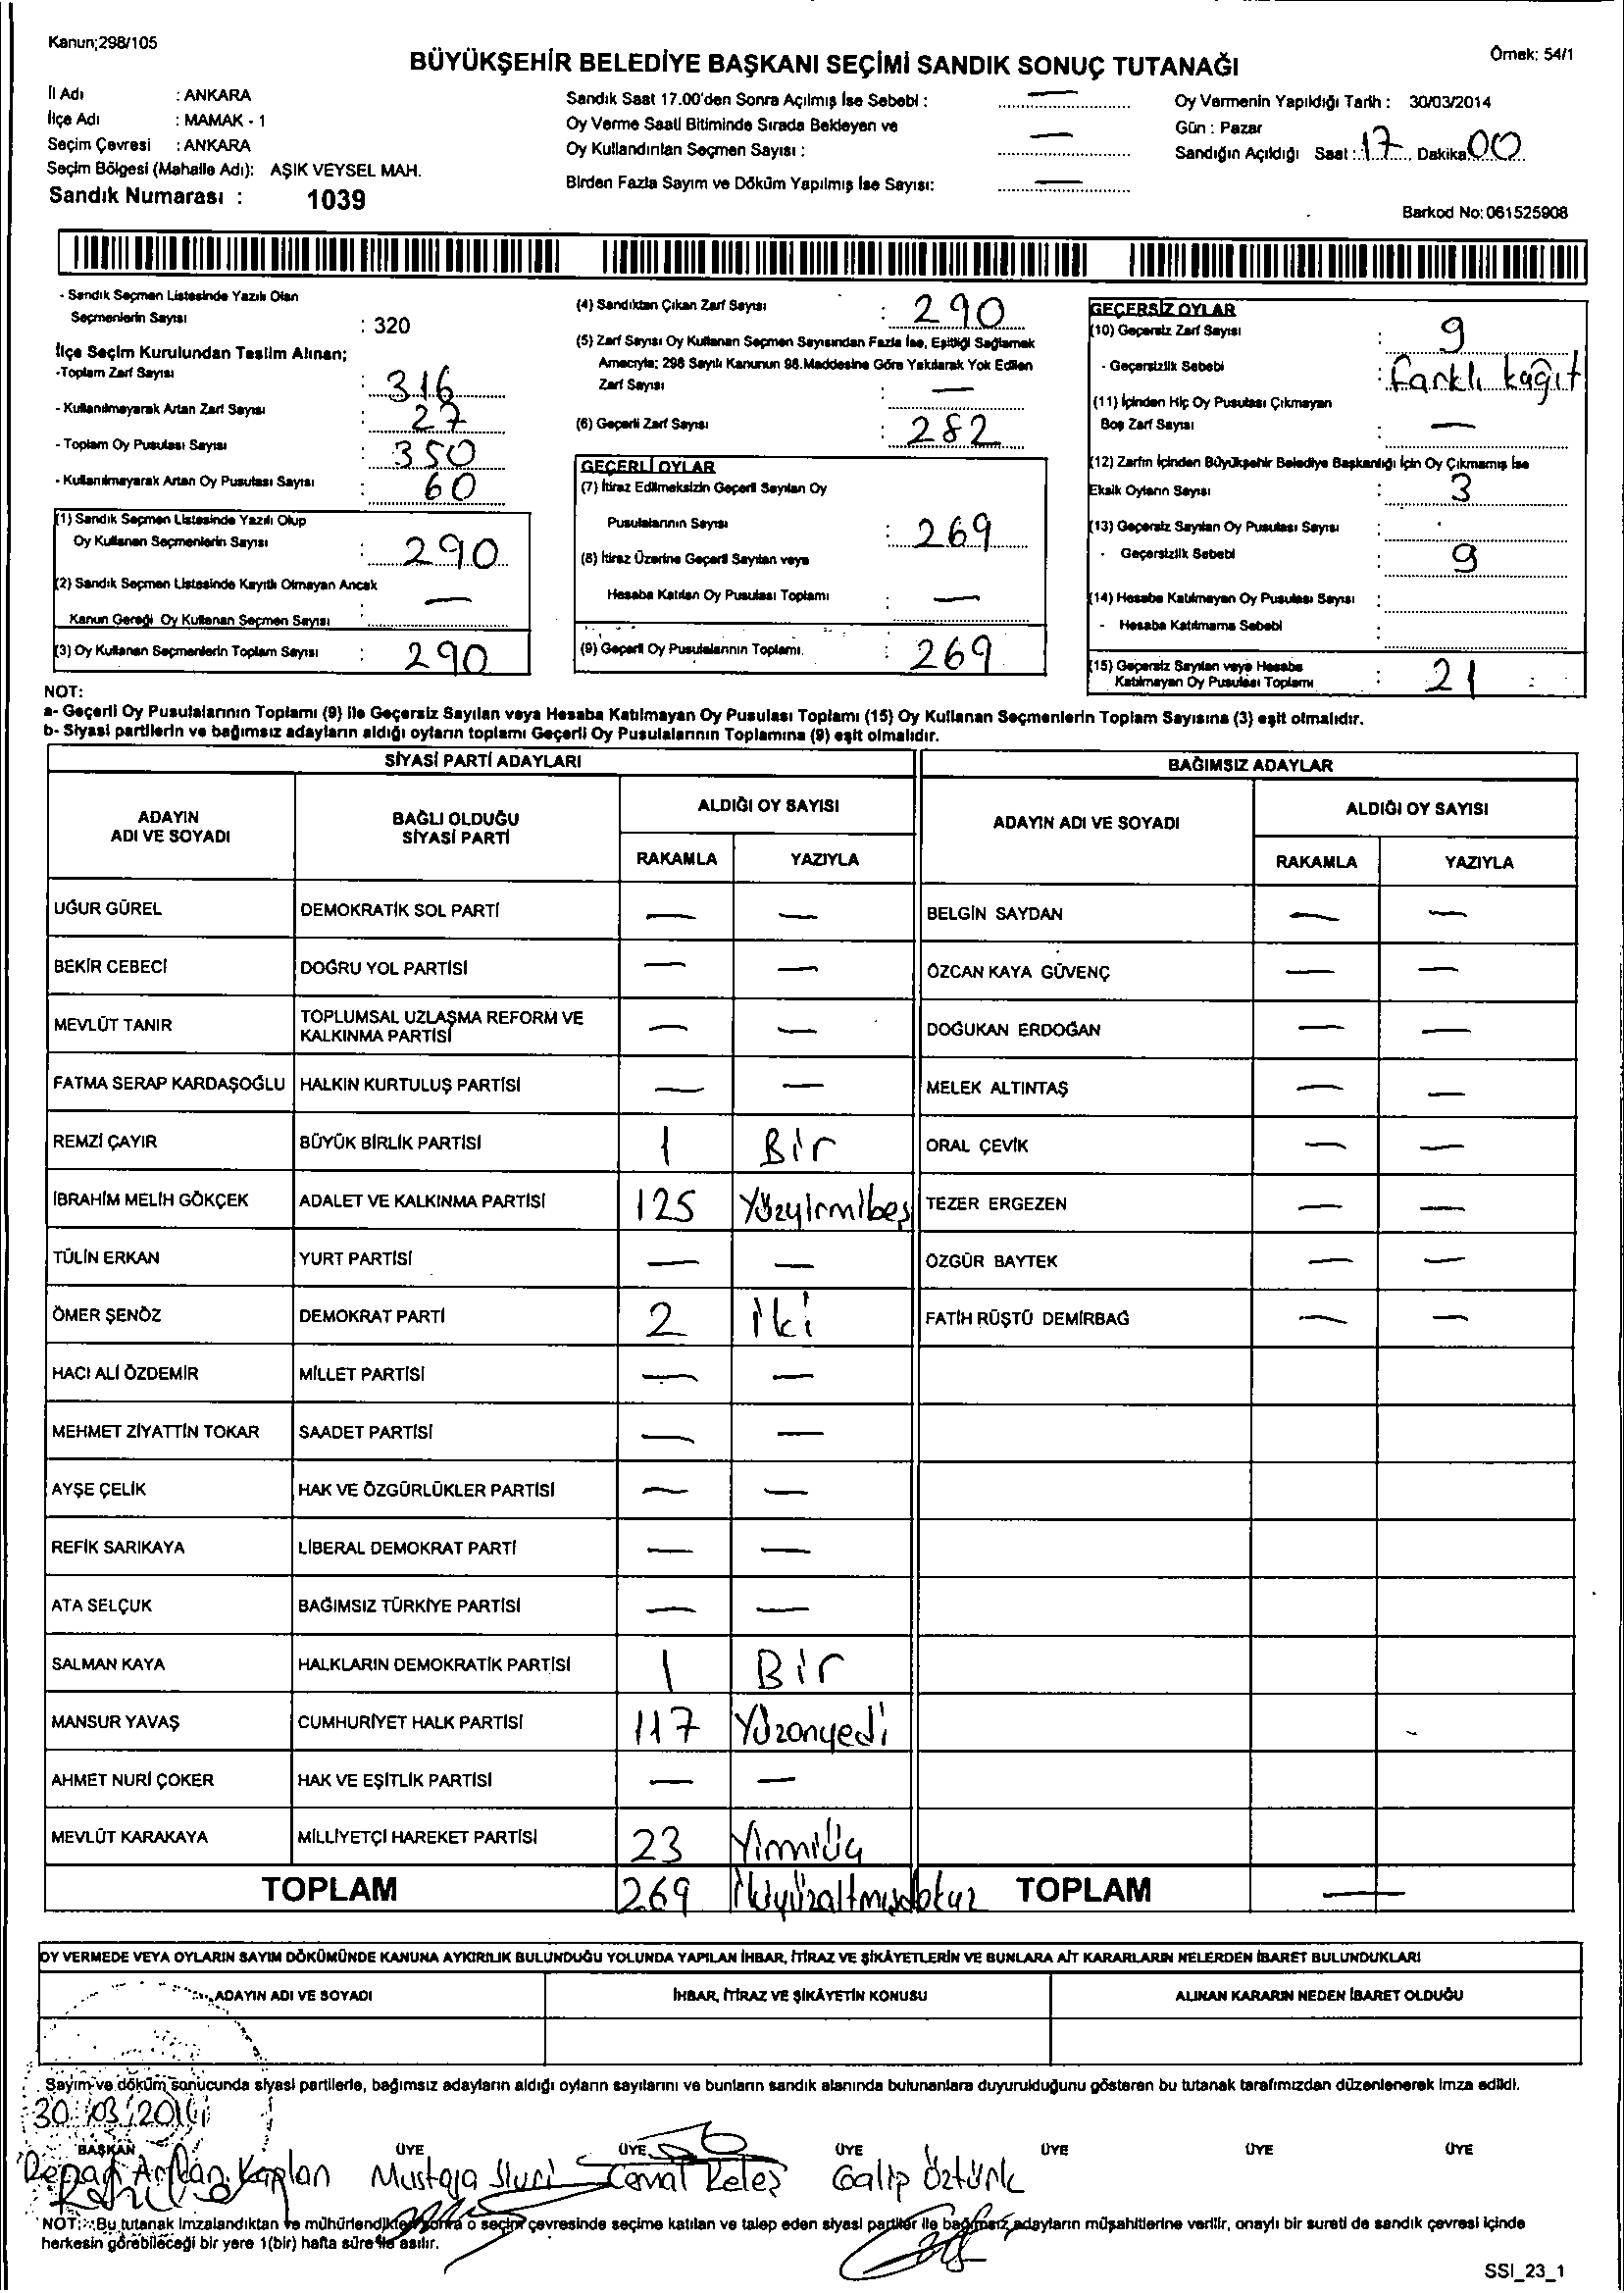 Kanun;298/105
Örnek: 54/1
BÜYÜKŞEHİR BELEDİYE BAŞKANI SEÇİMİ SANDIK SONUÇ TUTANAĞI
İl Adı : ANKARA
İlçe Adı : MAMAK - 1
Seçim Çevresi : ANKARA
Seçim Bölgesi (Mahalle Adı): AŞIK VEYSEL MAH.
Sandık Numarası : 1039
Sandık Saat 17.00'den Sonra Açılmış İse Sebebi : —
Oy Verme Saati Bitiminde Sırada Bekleyen ve
Oy Kullandırılan Seçmen Sayısı : —
Birden Fazla Sayım ve Döküm Yapılmış İse Sayısı: —
Oy Vermenin Yapıldığı Tarih : 30/03/2014
Gün : Pazar
Sandığın Açıldığı Saat : 17 Dakika: 00
Barkod No: 061525908
- Sandık Seçmen Listesinde Yazılı Olan
Seçmenlerin Sayısı : 320
İlçe Seçim Kurulundan Teslim Alınan;
-Toplam Zarf Sayısı : 316
- Kullanılmayarak Artan Zarf Sayısı : 27
- Toplam Oy Pusulası Sayısı : 350
- Kullanılmayarak Artan Oy Pusulası Sayısı : 60
(1) Sandık Seçmen Listesinde Yazılı Olup
Oy Kullanan Seçmenlerin Sayısı : 290
(2) Sandık Seçmen Listesinde Kayıtlı Olmayan Ancak
Kanun Gereği Oy Kullanan Seçmen Sayısı : —
(3) Oy Kullanan Seçmenlerin Toplam Sayısı : 290
(4) Sandıktan Çıkan Zarf Sayısı : 290
(5) Zarf Sayısı Oy Kullanan Seçmen Sayısından Fazla İse, Eşitliği Sağlamak
Amacıyla; 298 Sayılı Kanunun 98.Maddesine Göre Yakılarak Yok Edilen
Zarf Sayısı : —
(6) Geçerli Zarf Sayısı : 282
GEÇERLİ OYLAR
(7) İtiraz Edilmeksizin Geçerli Sayılan Oy
Pusulalarının Sayısı : 269
(8) İtiraz Üzerine Geçerli Sayılan veya
Hesaba Katılan Oy Pusulası Toplamı : —
(9) Geçerli Oy Pusulalarının Toplamı. : 269
GEÇERSİZ OYLAR
(10) Geçersiz Zarf Sayısı : 9
- Geçersizlik Sebebi : farklı kağıt
(11) İçinden Hiç Oy Pusulası Çıkmayan
Boş Zarf Sayısı : —
(12) Zarfın İçinden Büyükşehir Belediye Başkanlığı İçin Oy Çıkmamış İse
Eksik Oyların Sayısı : 3
(13) Geçersiz Sayılan Oy Pusulası Sayısı :
- Geçersizlik Sebebi : 9
(14) Hesaba Katılmayan Oy Pusulası Sayısı :
- Hesaba Katılmama Sebebi :
(15) Geçersiz Sayılan veya Hesaba
Katılmayan Oy Pusulası Toplamı : 21
NOT:
a- Geçerli Oy Pusulalarının Toplamı (9) ile Geçersiz Sayılan veya Hesaba Katılmayan Oy Pusulası Toplamı (15) Oy Kullanan Seçmenlerin Toplam Sayısına (3) eşit olmalıdır.
b- Siyasi partilerin ve bağımsız adayların aldığı oyların toplamı Geçerli Oy Pusulalarının Toplamına (9) eşit olmalıdır.
SİYASİ PARTİ ADAYLARI BAĞIMSIZ ADAYLAR
ADAYIN ADI VE SOYADI BAĞLI OLDUĞU SİYASİ PARTİ ALDIĞI OY SAYISI ADAYIN ADI VE SOYADI ALDIĞI OY SAYISI
RAKAMLA YAZIYLA RAKAMLA YAZIYLA
UĞUR GÜREL DEMOKRATİK SOL PARTİ — — BELGİN SAYDAN — —
BEKİR CEBECİ DOĞRU YOL PARTİSİ — — ÖZCAN KAYA GÜVENÇ — —
MEVLÜT TANIR TOPLUMSAL UZLAŞMA REFORM VE KALKINMA PARTİSİ — — DOĞUKAN ERDOĞAN — —
FATMA SERAP KARDAŞOĞLU HALKIN KURTULUŞ PARTİSİ — — MELEK ALTINTAŞ — —
REMZİ ÇAYIR BÜYÜK BİRLİK PARTİSİ 1 Bir ORAL ÇEVİK — —
İBRAHİM MELİH GÖKÇEK ADALET VE KALKINMA PARTİSİ 125 Yüzyirmibeş TEZER ERGEZEN — —
TÜLİN ERKAN YURT PARTİSİ — — ÖZGÜR BAYTEK — —
ÖMER ŞENÖZ DEMOKRAT PARTİ 2 iki FATİH RÜŞTÜ DEMİRBAĞ — —
HACI ALİ ÖZDEMİR MİLLET PARTİSİ — —
MEHMET ZİYATTİN TOKAR SAADET PARTİSİ — —
AYŞE ÇELİK HAK VE ÖZGÜRLÜKLER PARTİSİ — —
REFİK SARIKAYA LİBERAL DEMOKRAT PARTİ — —
ATA SELÇUK BAĞIMSIZ TÜRKİYE PARTİSİ — —
SALMAN KAYA HALKLARIN DEMOKRATİK PARTİSİ 1 Bir
MANSUR YAVAŞ CUMHURİYET HALK PARTİSİ 117 Yüzonyedi
AHMET NURİ ÇOKER HAK VE EŞİTLİK PARTİSİ — —
MEVLÜT KARAKAYA MİLLİYETÇİ HAREKET PARTİSİ 23 Yirmiüç
TOPLAM 269 ikiyüzaltmışdokuz TOPLAM —
OY VERMEDE VEYA OYLARIN SAYIM DÖKÜMÜNDE KANUNA AYKIRILIK BULUNDUĞU YOLUNDA YAPILAN İHBAR, İTİRAZ VE ŞİKÂYETLERİN VE BUNLARA AİT KARARLARIN NELERDEN İBARET BULUNDUKLARI
ADAYIN ADI VE SOYADI İHBAR, İTİRAZ VE ŞİKÂYETİN KONUSU ALINAN KARARIN NEDEN İBARET OLDUĞU
Sayım ve döküm sonucunda siyasi partilerle, bağımsız adayların aldığı oyların sayılarını ve bunların sandık alanında bulunanlara duyurulduğunu gösteren bu tutanak tarafımızdan düzenlenerek imza edildi.
30/03/2014
BAŞKAN ÜYE ÜYE ÜYE ÜYE ÜYE ÜYE
Kaplan Mustafa Cemal Keleş Galip Öztürk
NOT: Bu tutanak imzalandıktan ve mühürlendikten sonra o seçim çevresinde seçime katılan ve talep eden siyasi partiler ile bağımsız adayların müşahitlerine verilir, onaylı bir sureti de sandık çevresi içinde
herkesin görebileceği bir yere 1(bir) hafta süre ile asılır.
SSI_23_1